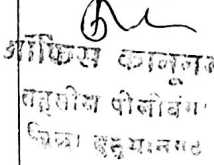 ऑफिस कानूनग
तहसील पीलीबंगा
जिला हनुमानगढ